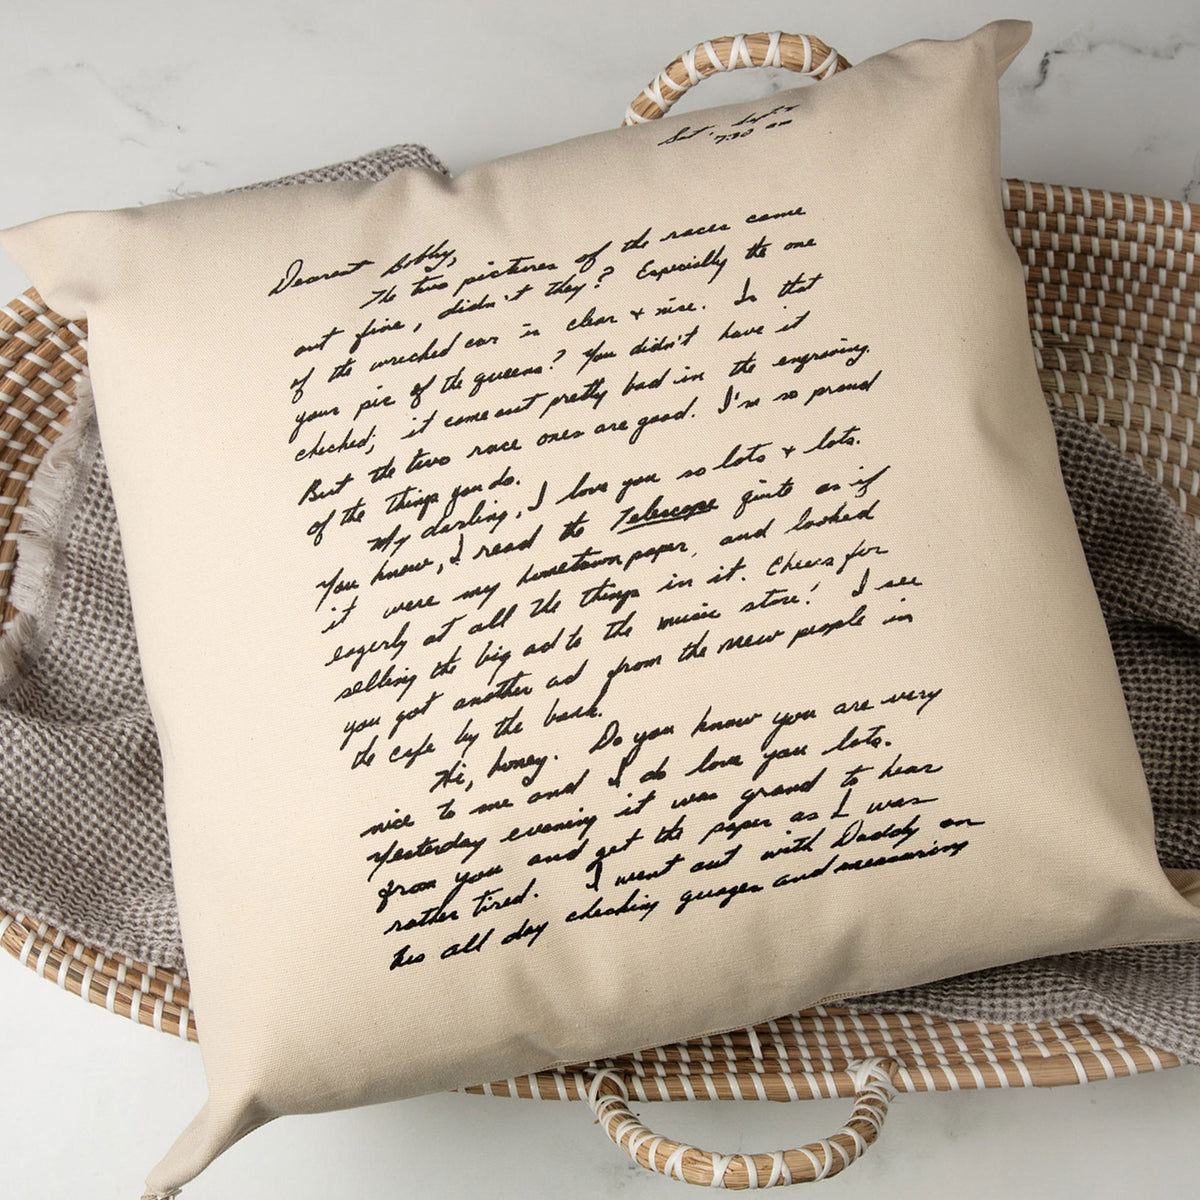 Sat. Sept
7:30 am
Dearest Bobby,
The two pictures of the races came
out fine, didn't they? Especially the one
of the wrecked car is clear + nice. Is that
your pic of the queens? You didn't have it
checked; it came out pretty bad in the engraving.
But the two race ones are good. I'm so proud
of the things you do.
My darling, I love you so lots + lots.
You know, I read the Telescope quite as if
it were my hometown paper, and looked
eagerly at all the things in it. Cheers for
selling the big ad to the music store! I see
you got another ad from the new people in
the cafe by the bank.
Hi, honey. Do you know you are very
nice to me and I do love you lots.
Yesterday evening it was grand to hear
from you and get the paper as I was
rather tired. I went out with Daddy on
his all day checking guages and measuring